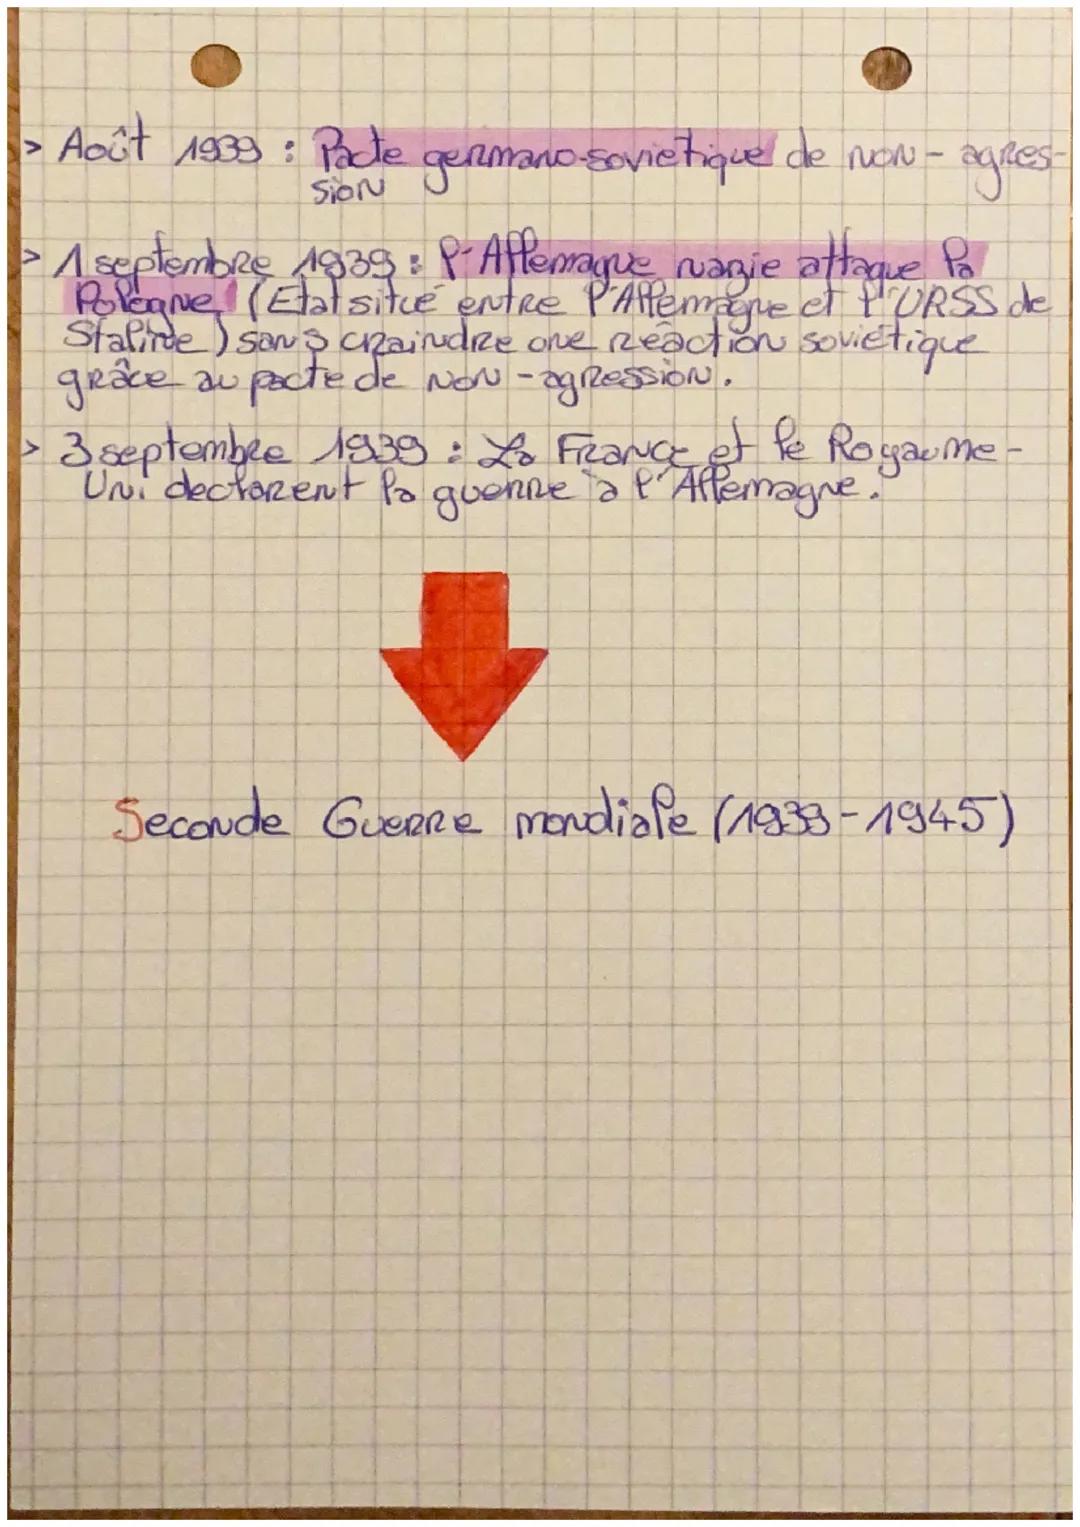 > Août 1939 : Pacte germano-soviétique de non-agres-
sion
> 1 septembre 1939 : l'Allemagne nazie attaque la
Pologne (Etat situé entre l'Allemagne et l'URSS de
Staline) sans craindre une réaction soviétique
grâce au pacte de non-agression.
> 3 septembre 1939 : La France et le Royaume-
Uni declarent la guerre à l'Allemagne.
Seconde Guerre mondiale (1939-1945)